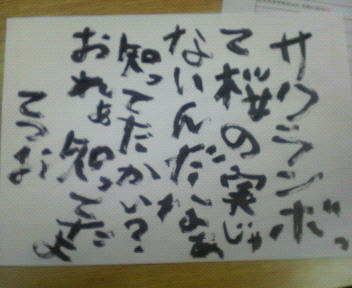 サクランボっ
て桜の実じゃ
ないんだなぁ
知ってだかい?
おれぁ知ってだよ
てつお